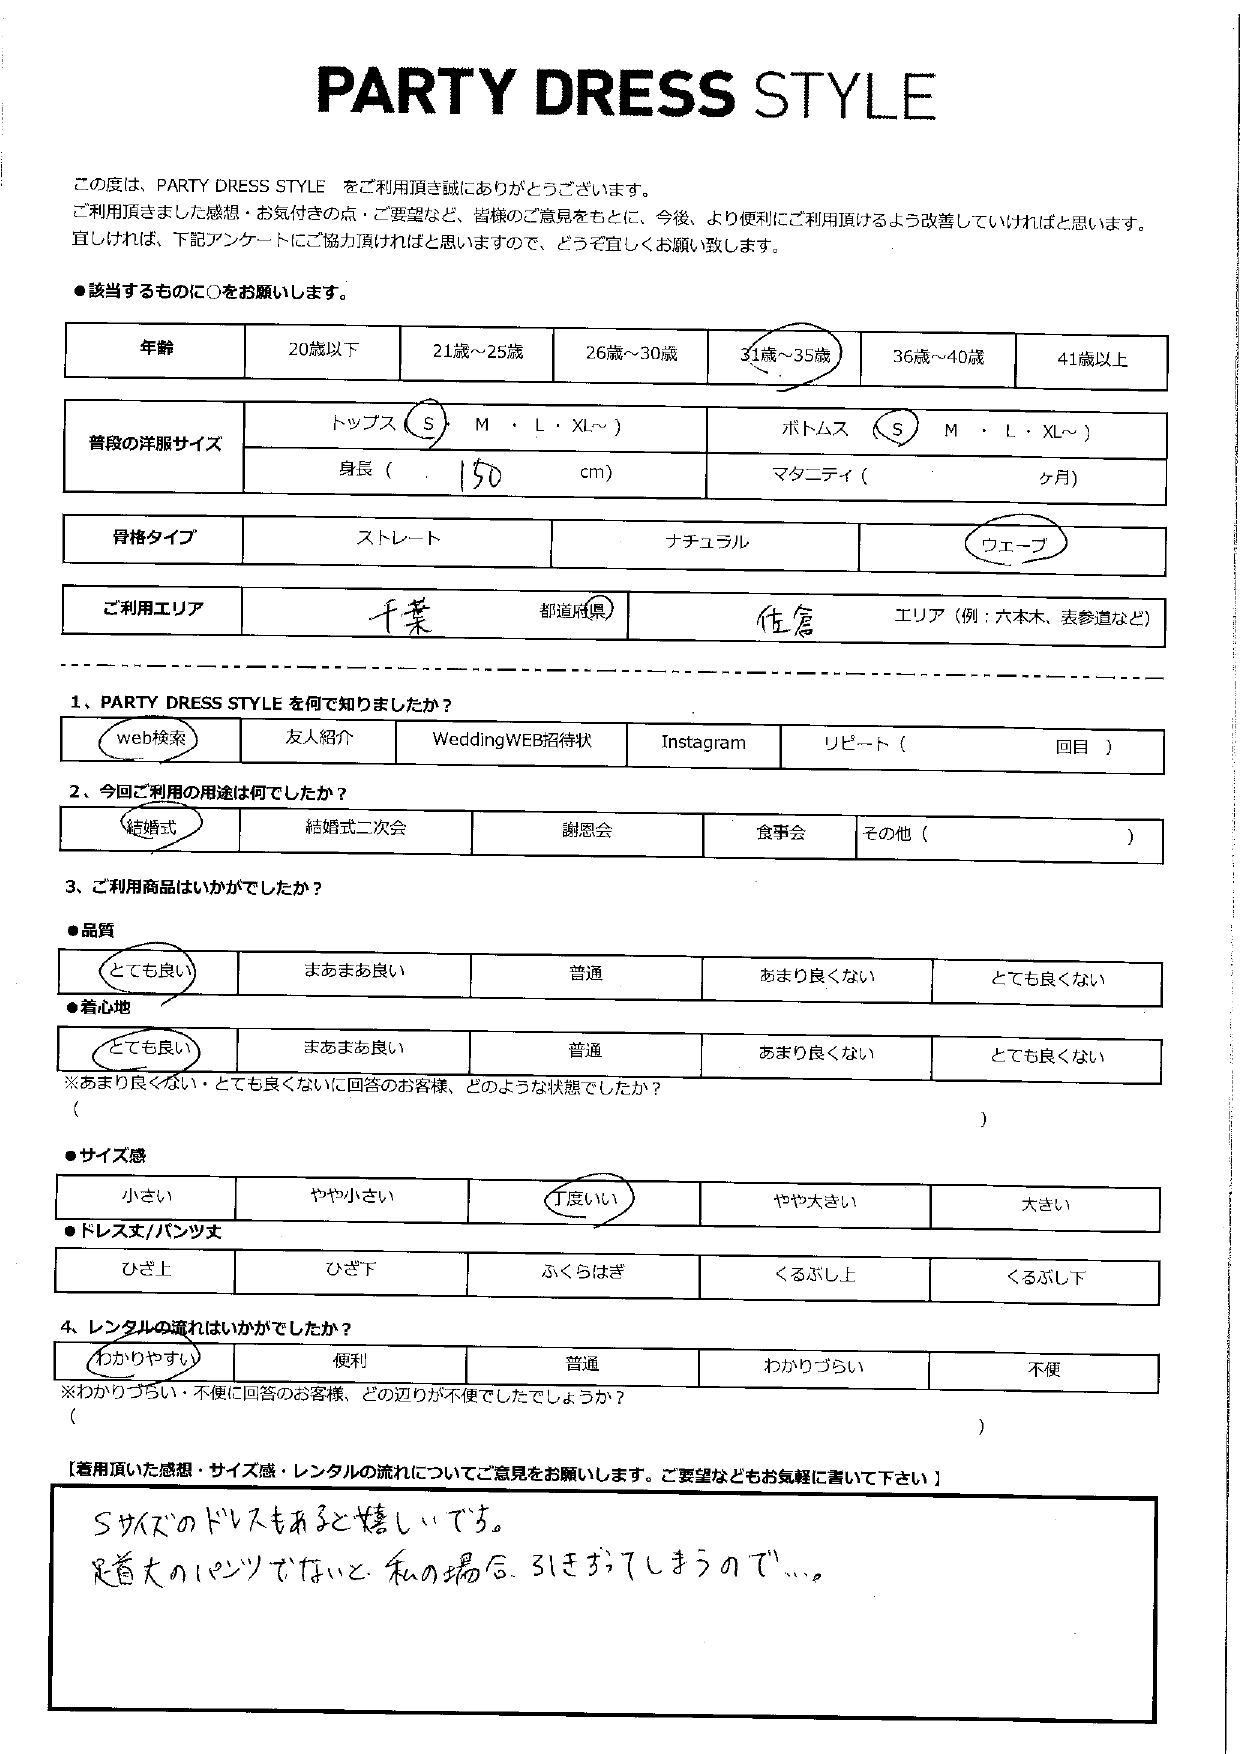 PARTY DRESS STYLE
この度は、PARTY DRESS STYLE をご利用頂き誠にありがとうございます。
ご利用頂きました感想・お気付きの点・ご要望など、皆様のご意見をもとに、今後、より便利にご利用頂けるよう改善していければと思います。
宜しければ、下記アンケートにご協力頂ければと思いますので、どうぞ宜しくお願い致します。
●該当するものに○をお願いします。
年齢 20歳以下 21歳～25歳 26歳～30歳 31歳～35歳 36歳～40歳 41歳以上
普段の洋服サイズ トップス ( S ・ M ・ L ・ XL～ ) ボトムス ( S ) M ・ L ・ XL～ )
身長 ( 150 cm) マタニティ ( ヶ月)
骨格タイプ ストレート ナチュラル ウェーブ
ご利用エリア 千葉 都道府県 佐倉 エリア（例：六本木、表参道など）
1、PARTY DRESS STYLE を何で知りましたか？
web検索 友人紹介 WeddingWEB招待状 Instagram リピート ( 回目 )
2、今回ご利用の用途は何でしたか？
結婚式 結婚式二次会 謝恩会 食事会 その他 ( )
3、ご利用商品はいかがでしたか？
●品質
とても良い まあまあ良い 普通 あまり良くない とても良くない
●着心地
とても良い まあまあ良い 普通 あまり良くない とても良くない
※あまり良くない・とても良くないに回答のお客様、どのような状態でしたか？
( )
●サイズ感
小さい やや小さい 丁度いい やや大きい 大きい
●ドレス丈/パンツ丈
ひざ上 ひざ下 ふくらはぎ くるぶし上 くるぶし下
4、レンタルの流れはいかがでしたか？
わかりやすい 便利 普通 わかりづらい 不便
※わかりづらい・不便に回答のお客様、どの辺りが不便でしたでしょうか？
( )
【着用頂いた感想・サイズ感・レンタルの流れについてご意見をお願いします。ご要望などもお気軽に書いて下さい 】
Sサイズのドレスもあると嬉しいです。
足首丈のパンツでないと、私の場合、引きずってしまうので…。